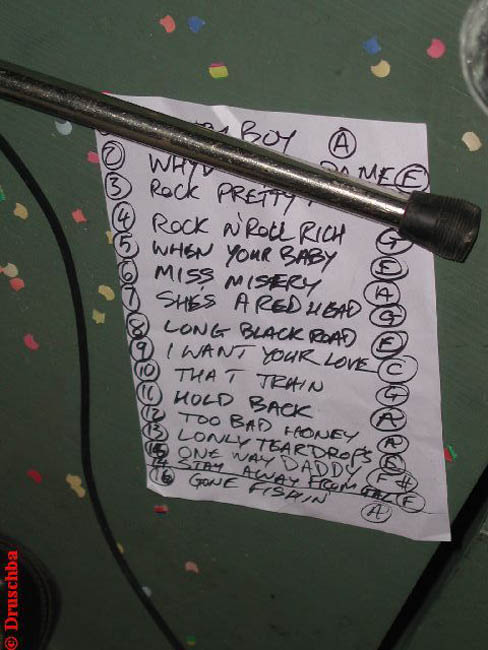 BOY A
2 WHY'D ME E
3 ROCK PRETTY
4 ROCK N' ROLL RICH G
5 WHEN YOUR BABY E
6 MISS MISERY A
7 SHE'S A RED HEAD G
8 LONG BLACK ROAD E
9 I WANT YOUR LOVE C
10 THAT TRAIN G
11 HOLD BACK A
12 TOO BAD HONEY A
13 LONLY TEARDROPS E
15 ONE WAY DADDY F#
14 STAY AWAY FROM GAL E
16 GONE FISHIN A
© Druschba